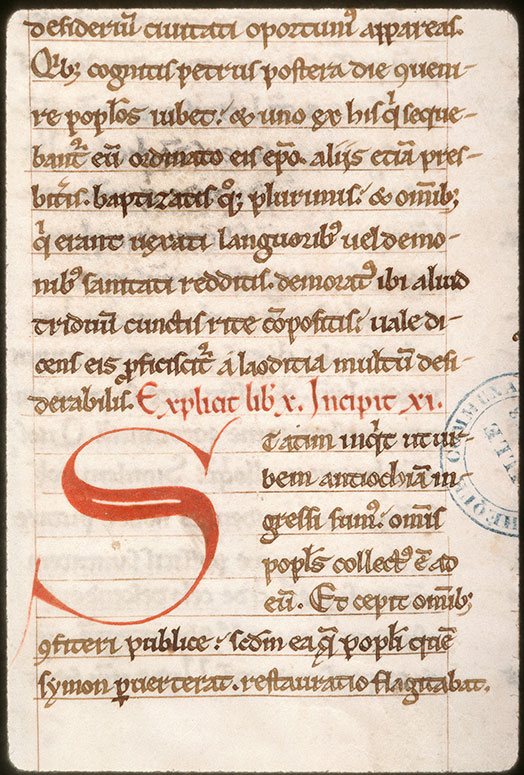 desideriū ciuitati oportunꝰ appareas.
Qⁱbꝫ cognitis petrus postera die ꝯueni-
re poplōs iubet: & uno ex his qⁱ seque-
bant᷑ eū ordinato eis ep̄o. aliis etiā pres-
bit᷑is. baptizatis qꝫ plurimis: & om̄ibꝫ
qⁱ erant uexati languoribꝰ uel demo-
nibꝰ sanitati redditis. demoratꝰ ibi aliud
triduū cunctis rite cōpositis: uale di-
cens eis ꝓficiscit᷑ a laoditia multū desi-
derabilis. Explicit lib᷑ x. Incipit xi.
Statim inqⁱt ut ur-
bem antiochiā in-
gressi sumꝰ: omīs
popl̄s collectꝰ ē ad
eū. Et cepit om̄ibꝫ
ꝯfiteri publice: sed in ea q̄ popl̄i
symon ꝑuerterat. restauratio flagitabat.